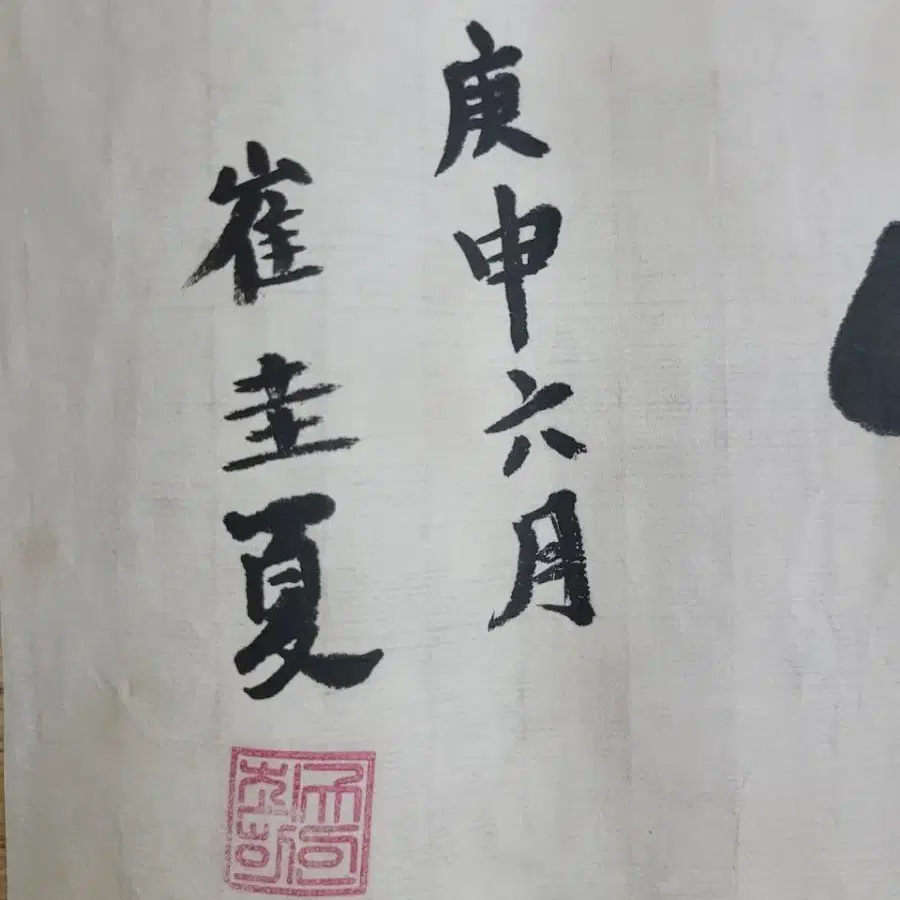 庚申六月
崔圭夏